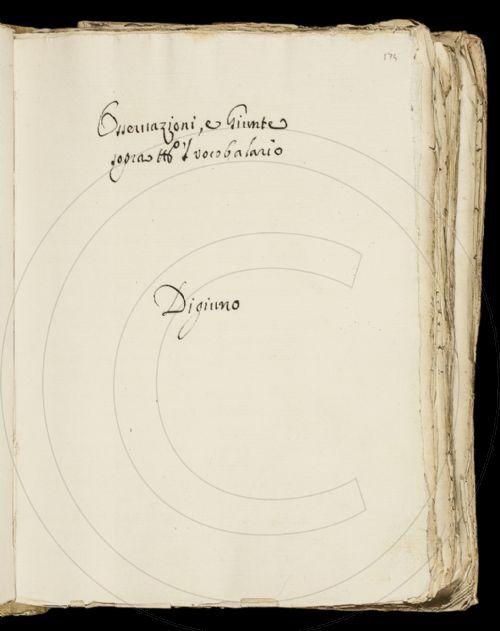 174
Osseruazioni, e Giunte
sopra ttº il vocobalario
Digiuno